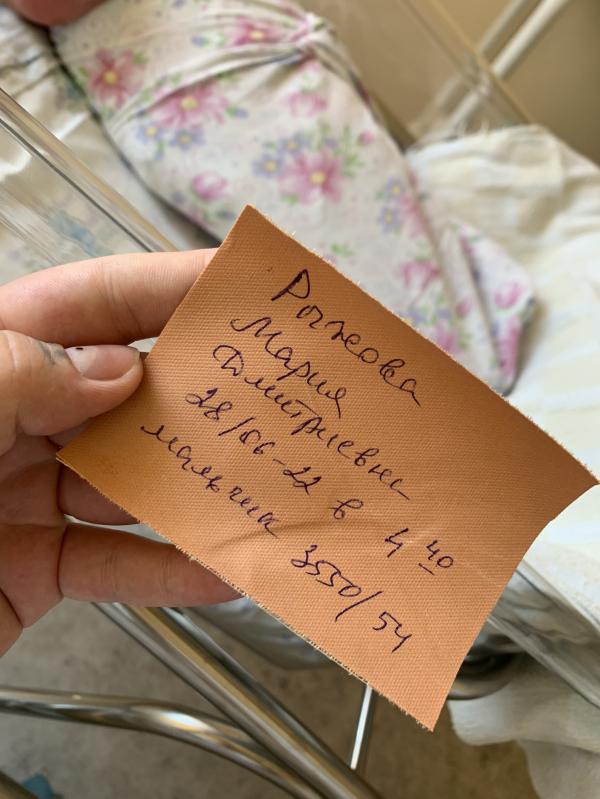 Рожкова
Мария
Дмитриевна
28/06-22 в 4 40
мальчик 3550/54